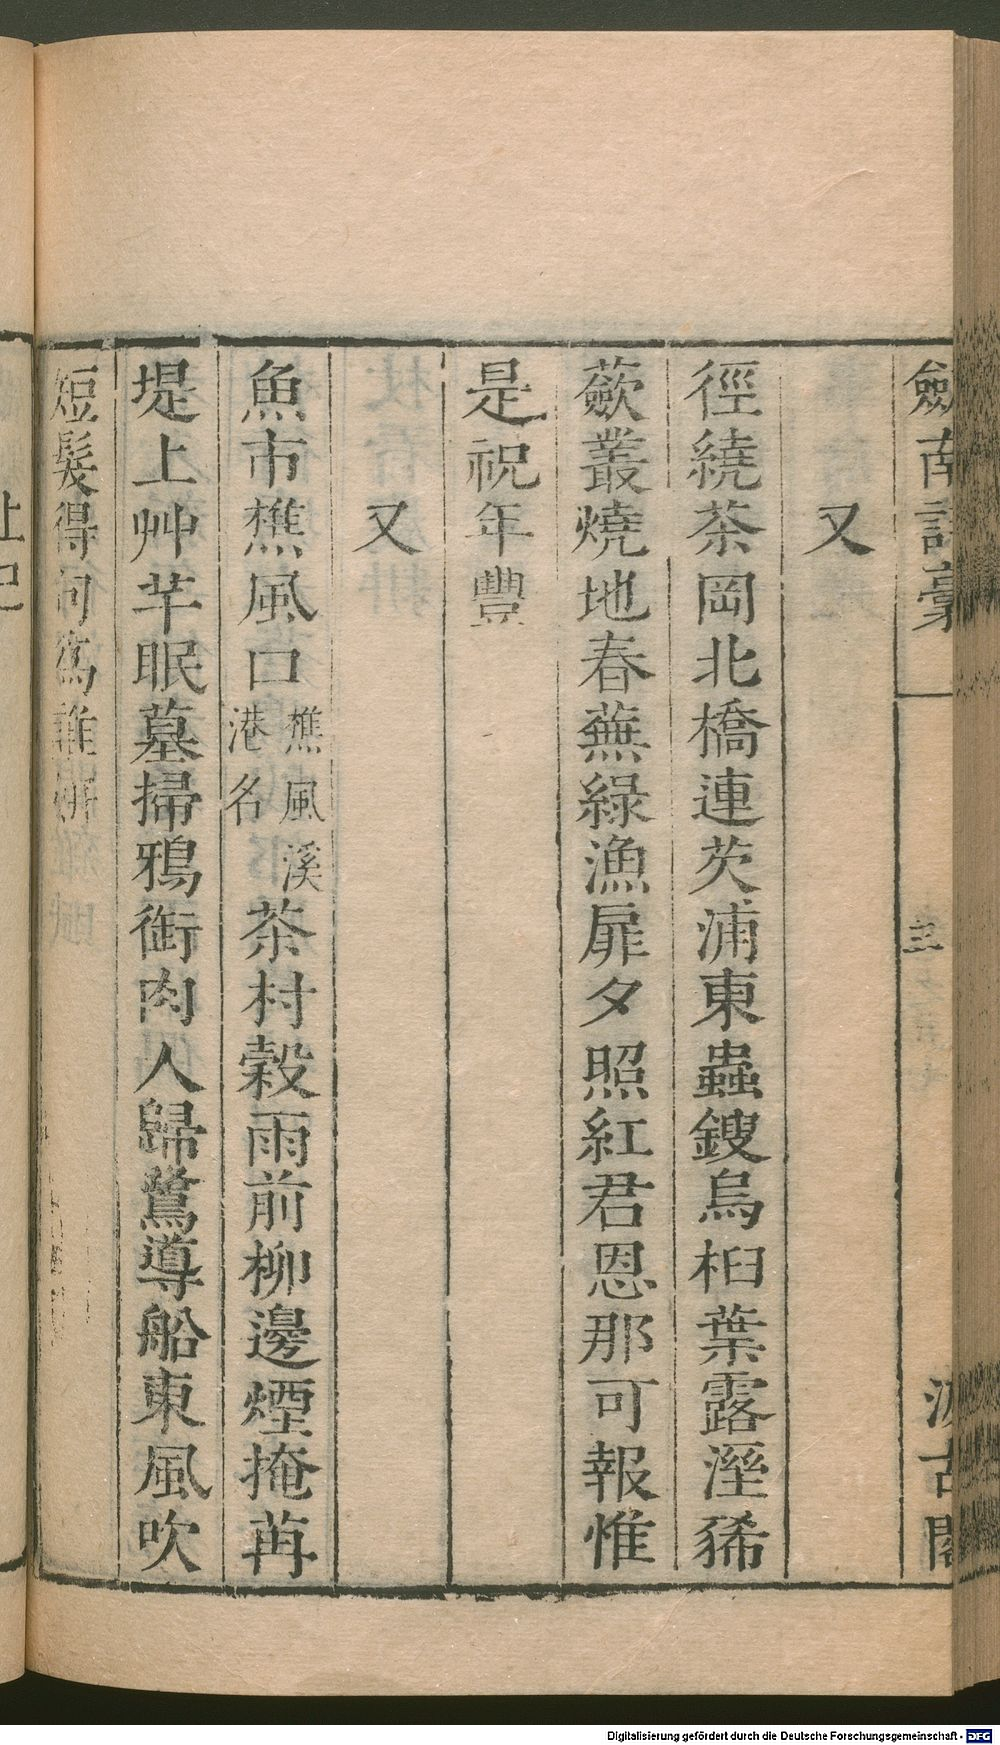 劍南詩稾 三 汲古閣
又
徑繞茶岡北橋連芡浦東蟲鎪烏桕葉露溼豨
蘞叢燒地春蕪綠漁扉夕照紅君恩那可報惟
是祝年豐
又
魚市樵風口樵風溪港名茶村穀雨前柳邊煙掩苒
堤上艸芊眠墓掃鴉銜肉人歸鷺導船東風吹
短髮得句爲誰
Digitalisierung gefördert durch die Deutsche Forschungsgemeinschaft - DFG